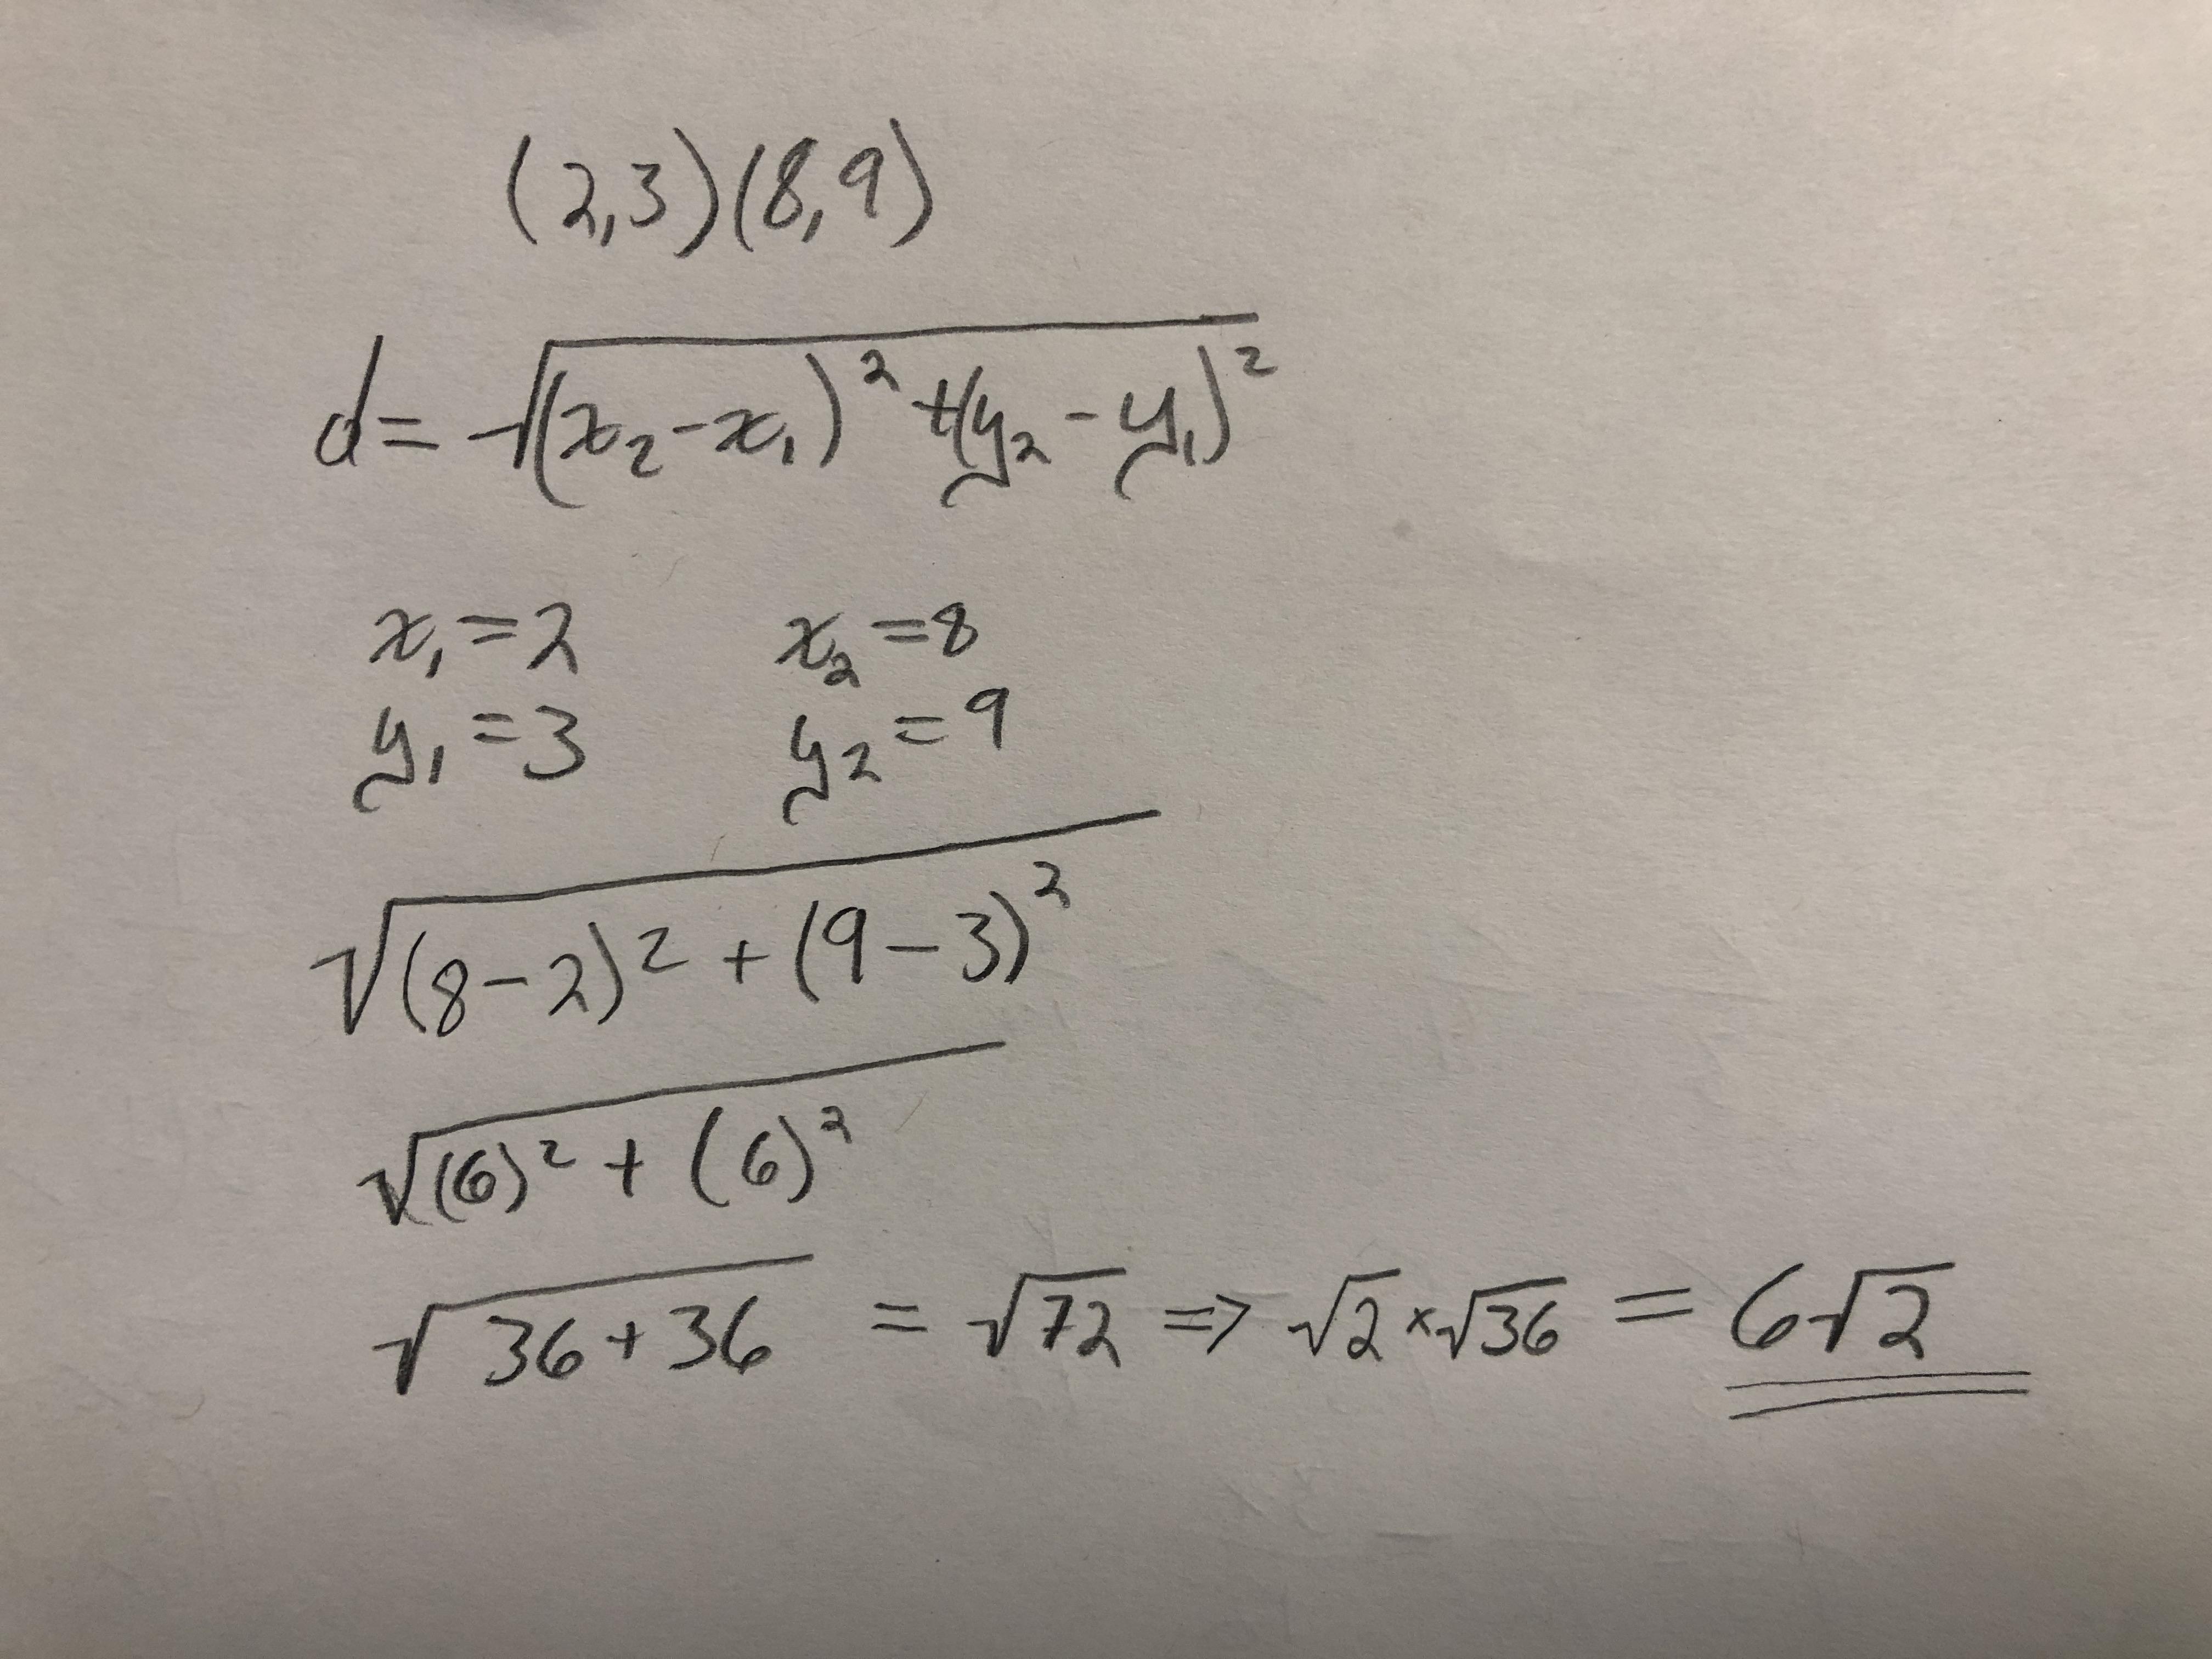 (2,3)(8,9)
d=√(x₂-x₁)²+(y₂-y₁)²
x₁=2 x₂=8
y₁=3 y₂=9
√(8-2)²+(9-3)²
√(6)²+(6)²
√36+36 = √72 => √2×√36 = 6√2